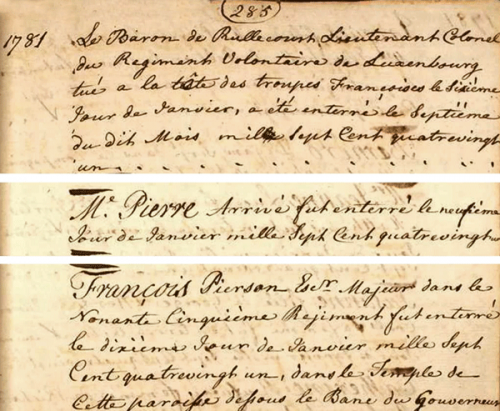 285
1781 Le Baron de Rullecourt Lieutenant Colonel
du Regiment Volontaire de Luxenbourg
tué a la tête des troupes Francoises le Sixiéme
Jour de Janvier, a été enterré le Septiéme
du dit Mois mille Sept Cent quatrevingt
un
Mr. Pierre Arrivé fut enterré le neufiéme
Jour de Janvier mille Sept Cent quatrevingt un
François Pierson Escr. Majeur dans le
Nonante Cinquiéme Regiment fut enterré
le dixiéme Jour de Janvier mille Sept
Cent quatrevingt un, dans le Temple de
Cette paroisse dessous le Banc du Gouverneur